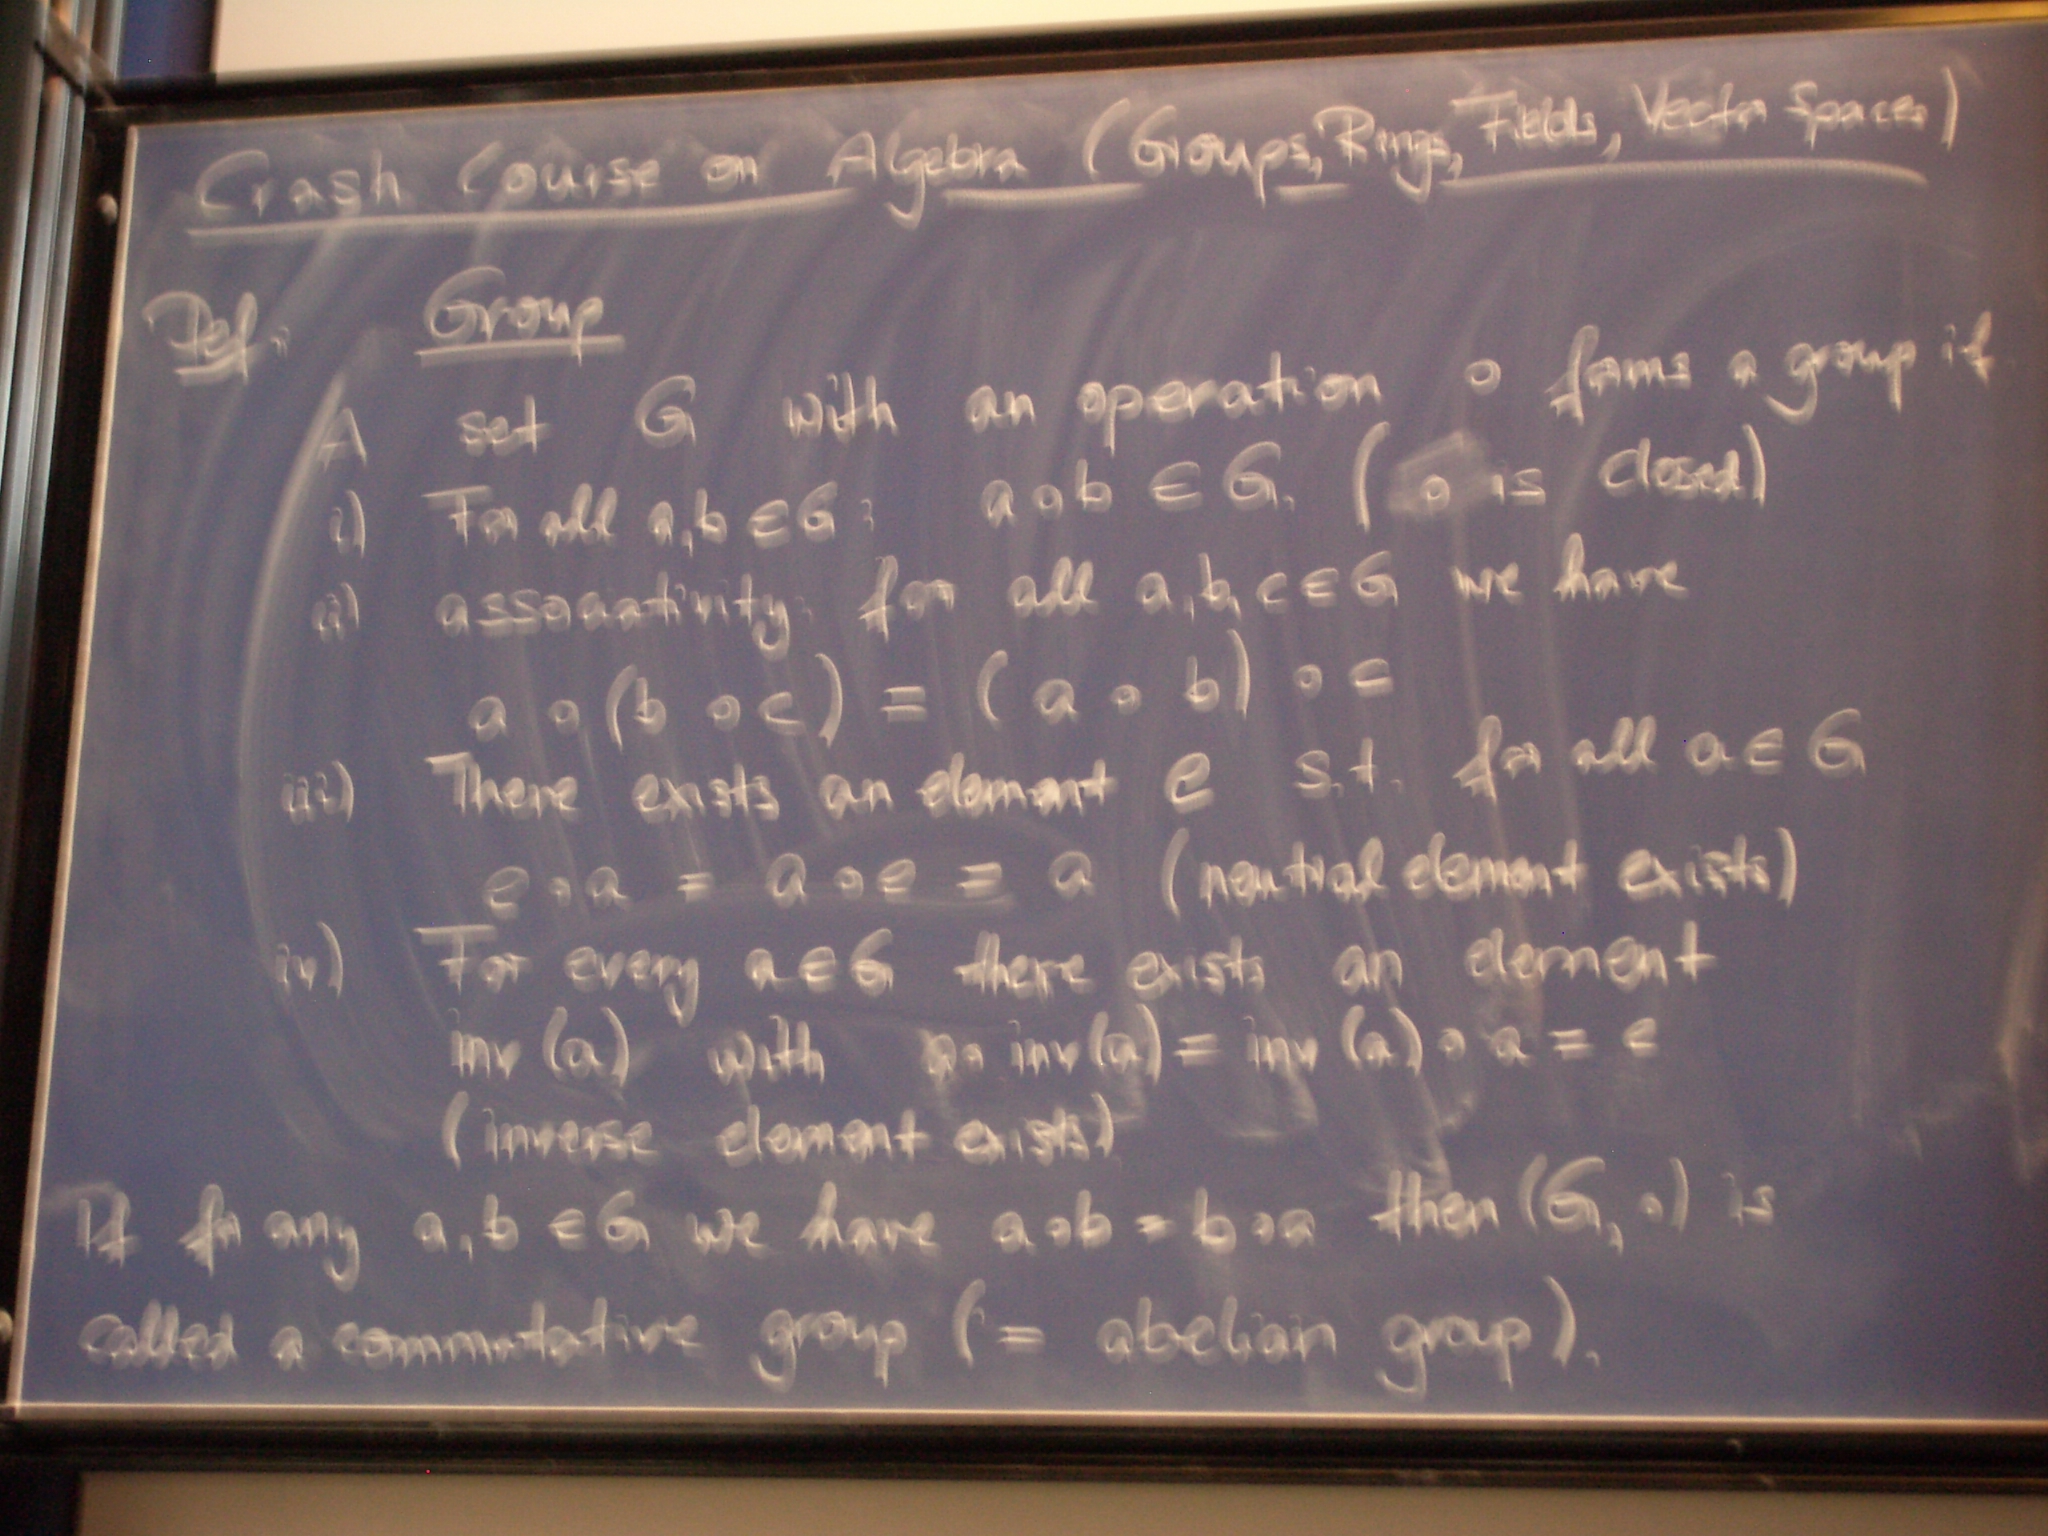 Crash Course on Algebra (Groups, Rings, Fields, Vector Spaces)
Def: Group
A set G with an operation ∘ forms a group if
i) For all a,b ∈ G: a∘b ∈ G. (∘ is closed)
ii) associativity: for all a,b,c ∈ G we have
a ∘ (b ∘ c) = (a ∘ b) ∘ c
iii) There exists an element e s.t. for all a ∈ G
e ∘ a = a ∘ e = a (neutral element exists)
iv) For every a ∈ G there exists an element
inv (a) with a∘ inv(a) = inv (a) ∘ a = e
(inverse element exists)
If for any a,b ∈ G we have a∘b = b∘a then (G, ∘) is
called a commutative group (= abelian group).